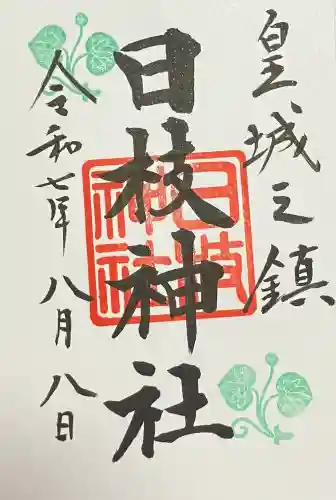 皇城之鎮
日枝神社
日枝神社
令和七年八月八日